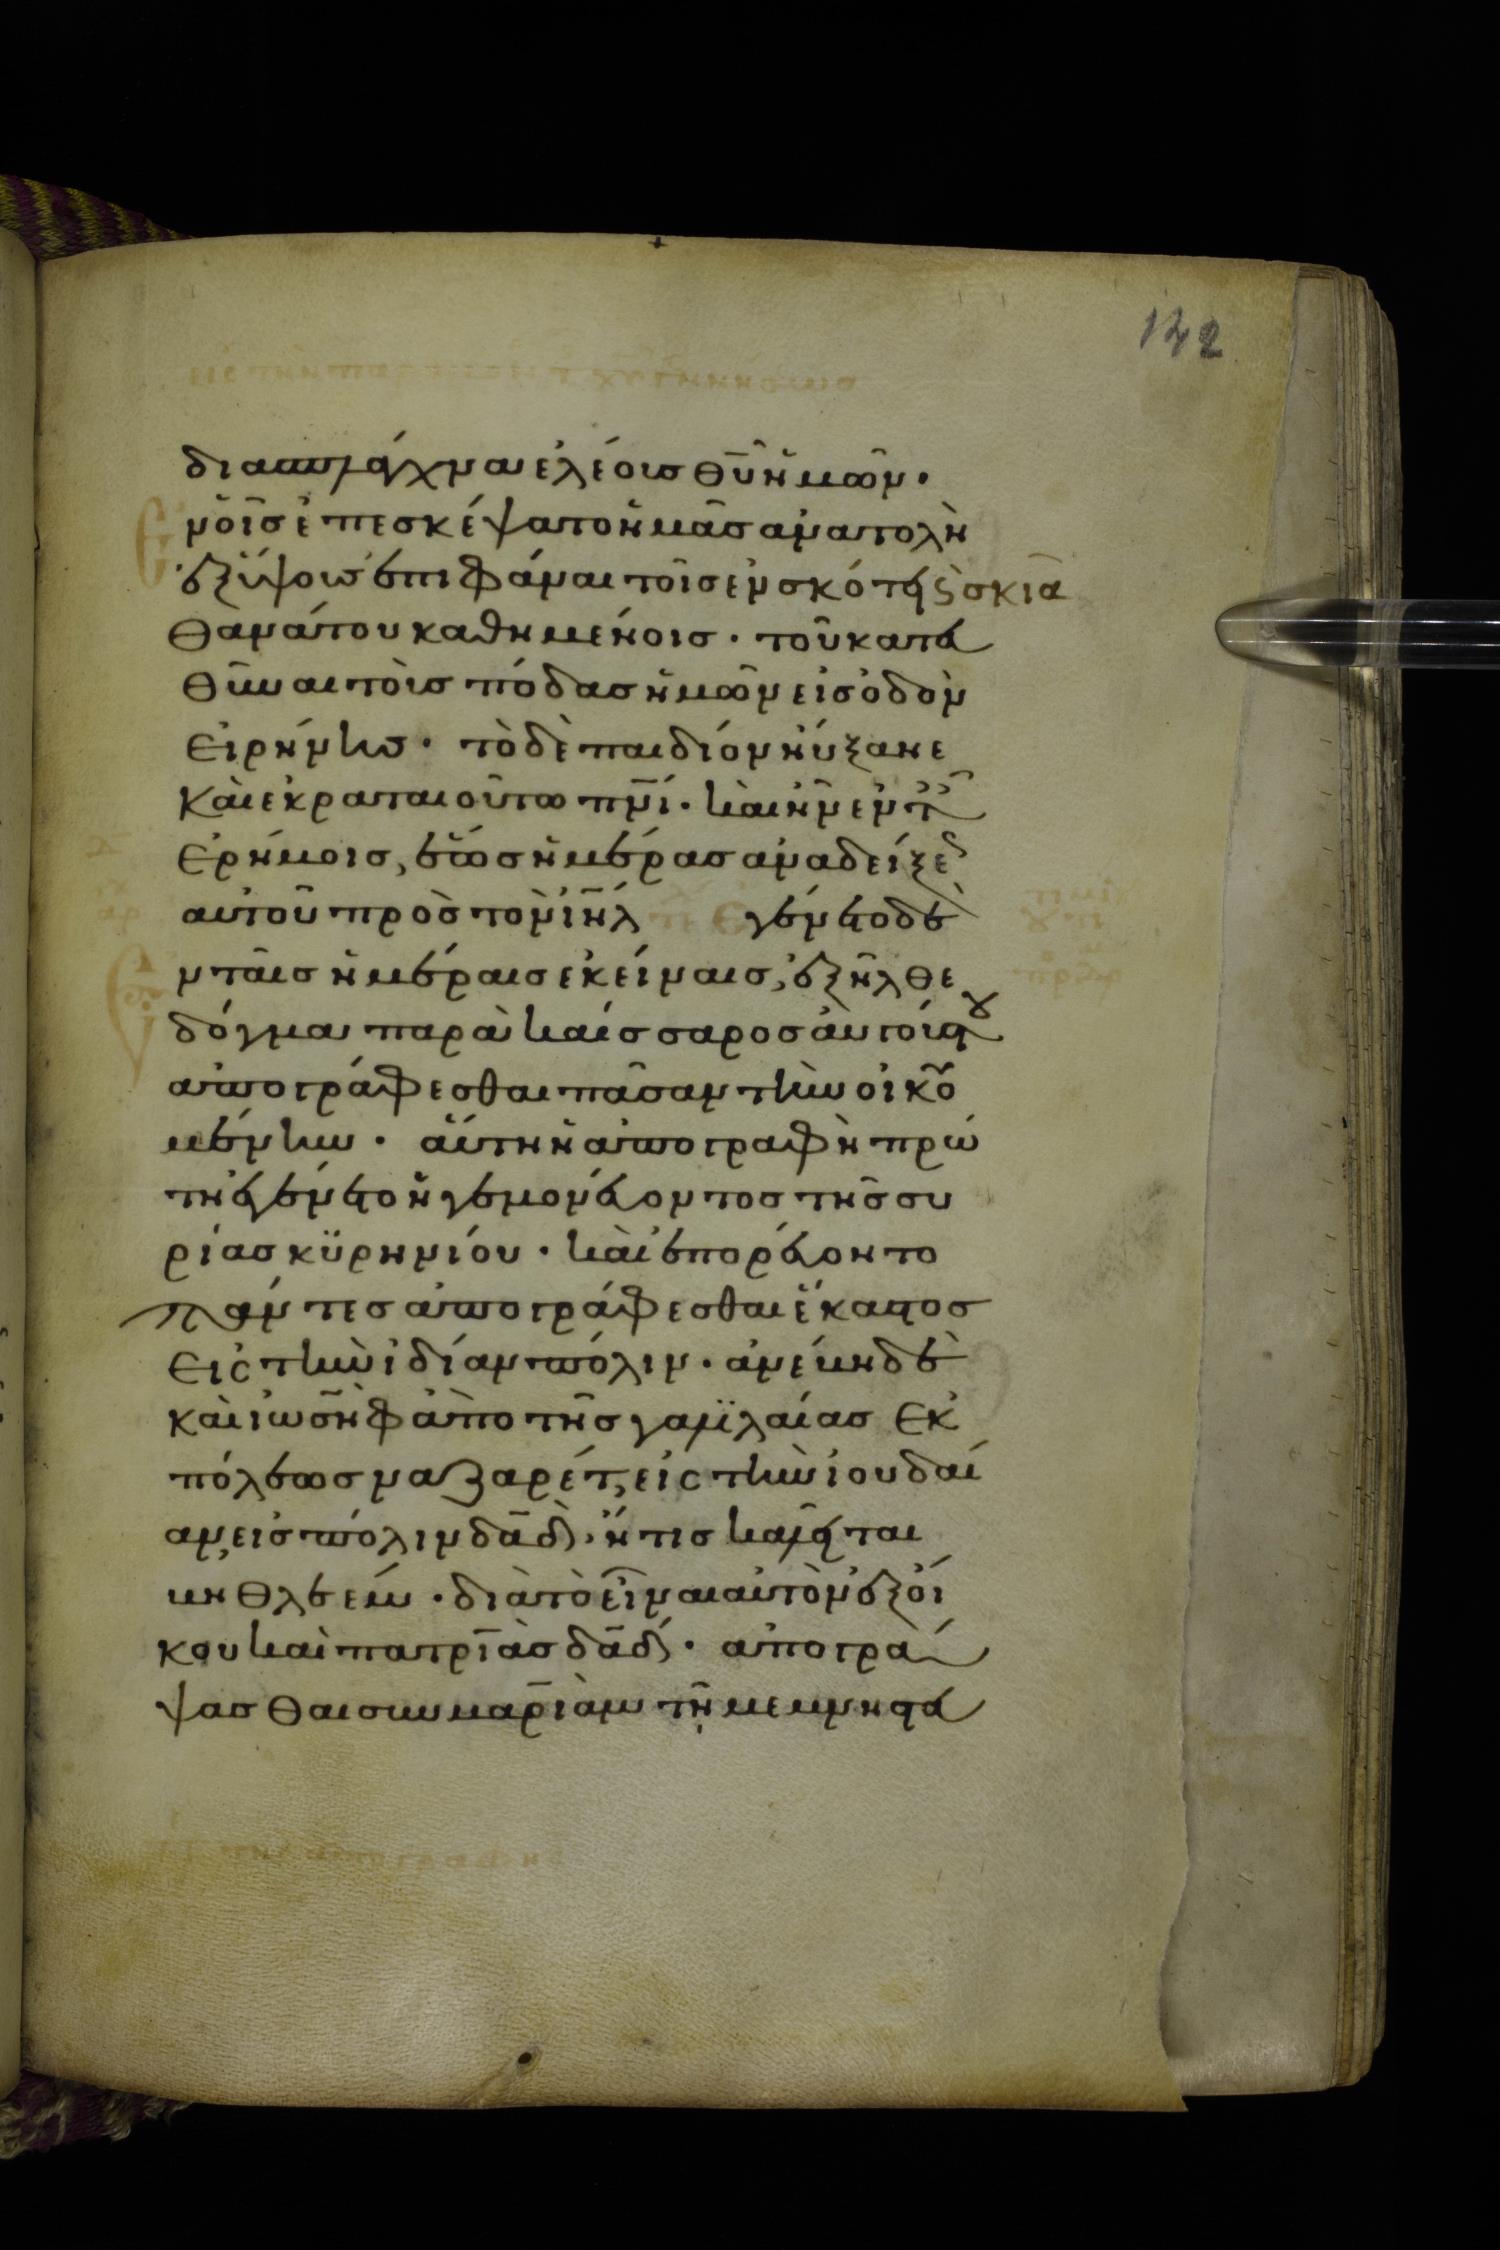 142
εις τὴν παραμονὴν τ χυ γεννήσεως
διασπλάγχνα ἐλέους θυ ἡμῶν·
ἐν οἷς ἐπεσκέψατο ἡμᾶς ἀνατολὴ
ἐξ ὕψους ἐπιφάναι τοῖς ἐν σκότει ϗ σκιᾶ
θανάτου καθημένοις· τοῦ κατευ
θῦναι τοὺς πόδας ἡμῶν εἰς ὁδὸν
εἰρήνης· τὸ δὲ παιδίον ηὔξανε
καὶ ἐκραταιοῦτο πνί· καὶ ἦν ἐν ταῖς
ἐρήμοις, ἕως ἡμέρας ἀναδείξεως
αὐτοῦ πρὸς τὸν ιηλ ἐγένετο δὲ
ἐν ταῖς ἡμέραις ἐκείναις, ἐξῆλθε
δόγμα παρὰ καίσσαρος αὐγούστου
ἀπογράφεσθαι πᾶσαν τὴν οἰκου
μένην· αὕτη ἡ ἀπογραφὴ πρώ
τη ἐγένετο ἡγεμονεύοντος τῆς συ
ρίας κϋρηνίου· καὶ ἐπορεύοντο
πάντες ἀπογράφεσθαι ἕκαστος
εἰς τὴν ἰδίαν πόλιν· ἀνέβη δὲ
καὶ ἰωσὴφ ἀπὸ τῆς γαλϊλαίας ἐκ
πόλεως ναζαρέτ, εἰς τὴν ἰουδαί
αν, εἰς πόλιν δαδ, ἥτις καλεῖται
βηθλεέμ· διὰ τὸ εἶναι αὐτὸν ἐξ οἴ
κου καὶ πατριᾶς δαδ· ἀπογρά
ψασθαι σὺν μαριὰμ τῆ μεμνηστευ
τῆς ἀπογραφῆς